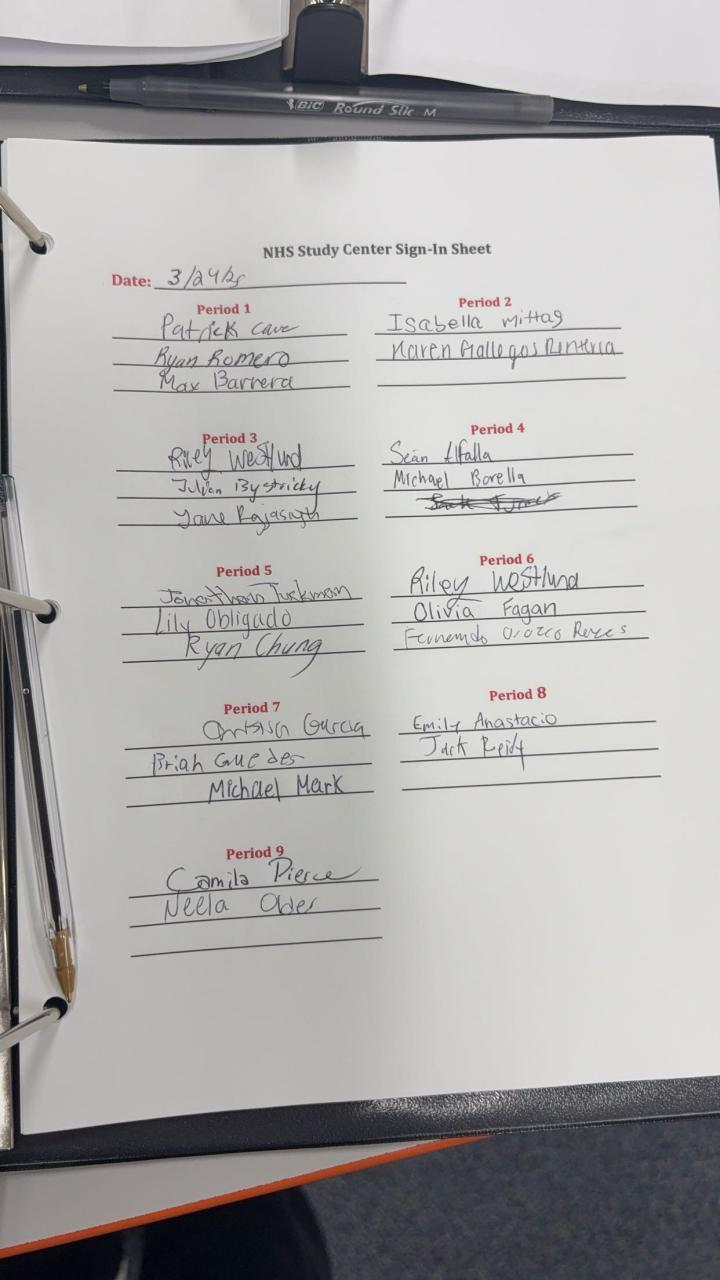 BIC Round Stic M
NHS Study Center Sign-In Sheet
Date: 3/24/25
Period 1
Patrick Cave
Ryan Romero
Max Barrera
Period 2
Isabella Mittag
Karen Gallegos Renteria
Period 3
Riley Westlund
Julian Bystricky
Period 4
Sean
Michael Borella
Period 5
Jonathan Tuckman
Lily Obligado
Ryan Chung
Period 6
Riley Westlund
Olivia Fagan
Fernando Orozco Reyes
Period 7
Garcia
Brian Guedes
Michael Mark
Period 8
Emily Anastacio
Jack Reidy
Period 9
Camila Pierce
Neela